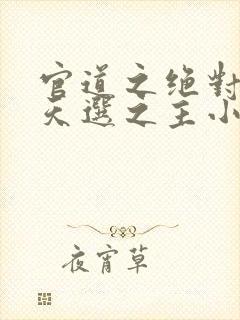 官道之绝對
天選之主小
夜宵草